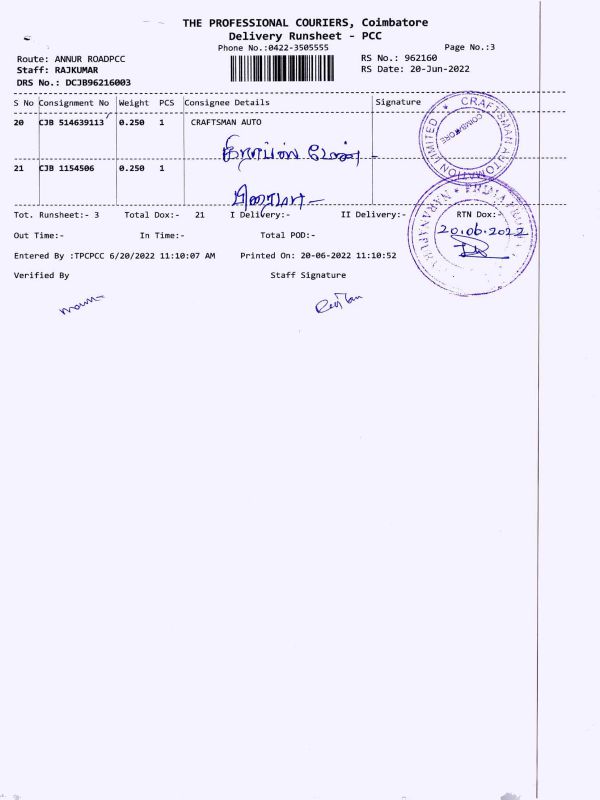 THE PROFESSIONAL COURIERS, Coimbatore
Delivery Runsheet - PCC
Phone No.:0422-3505555
Page No.:3
Route: ANNUR ROADPCC
RS No.: 962160
Staff: RAJKUMAR
RS Date: 20-Jun-2022
DRS No.: DCJB96216003
S No Consignment No Weight PCS Consignee Details Signature
20 CJB 514639113 0.250 1 CRAFTSMAN AUTO
21 CJB 1154506 0.250 1
CRAFTSMAN AUTOMATION LIMITED
COIMBATORE
Tot. Runsheet:- 3 Total Dox:- 21 I Delivery:- II Delivery:- RTN Dox:-
20.06.2022
Out Time:- In Time:- Total POD:-
Entered By :TPCPCC 6/20/2022 11:10:07 AM Printed On: 20-06-2022 11:10:52
Verified By Staff Signature